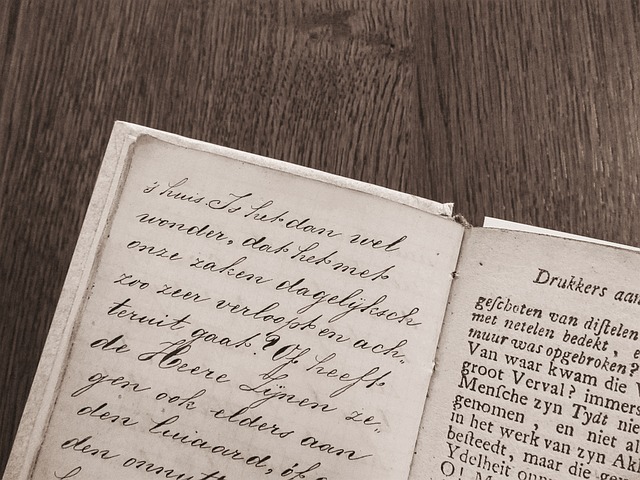 's huis. Is het dan wel
wonder, dat het met
onze zaken dagelijksch
zoo zeer verloopt en ach„
teruit gaat? Of heeft
de Heere Zijnen ze„
gen ook elders aan
den luiaard, óf a
den onnutt
Drukkers aan
geſchoten van diſtelen
met netelen bedekt, e
muur was opgebroken?
Van waar kwam die V
groot Verval? immers
Menſche zyn Tydt nie
genomen, en niet al
in het werk van zyn Ak
beſteedt, maar die gew
Ydelheit onnu
O! M